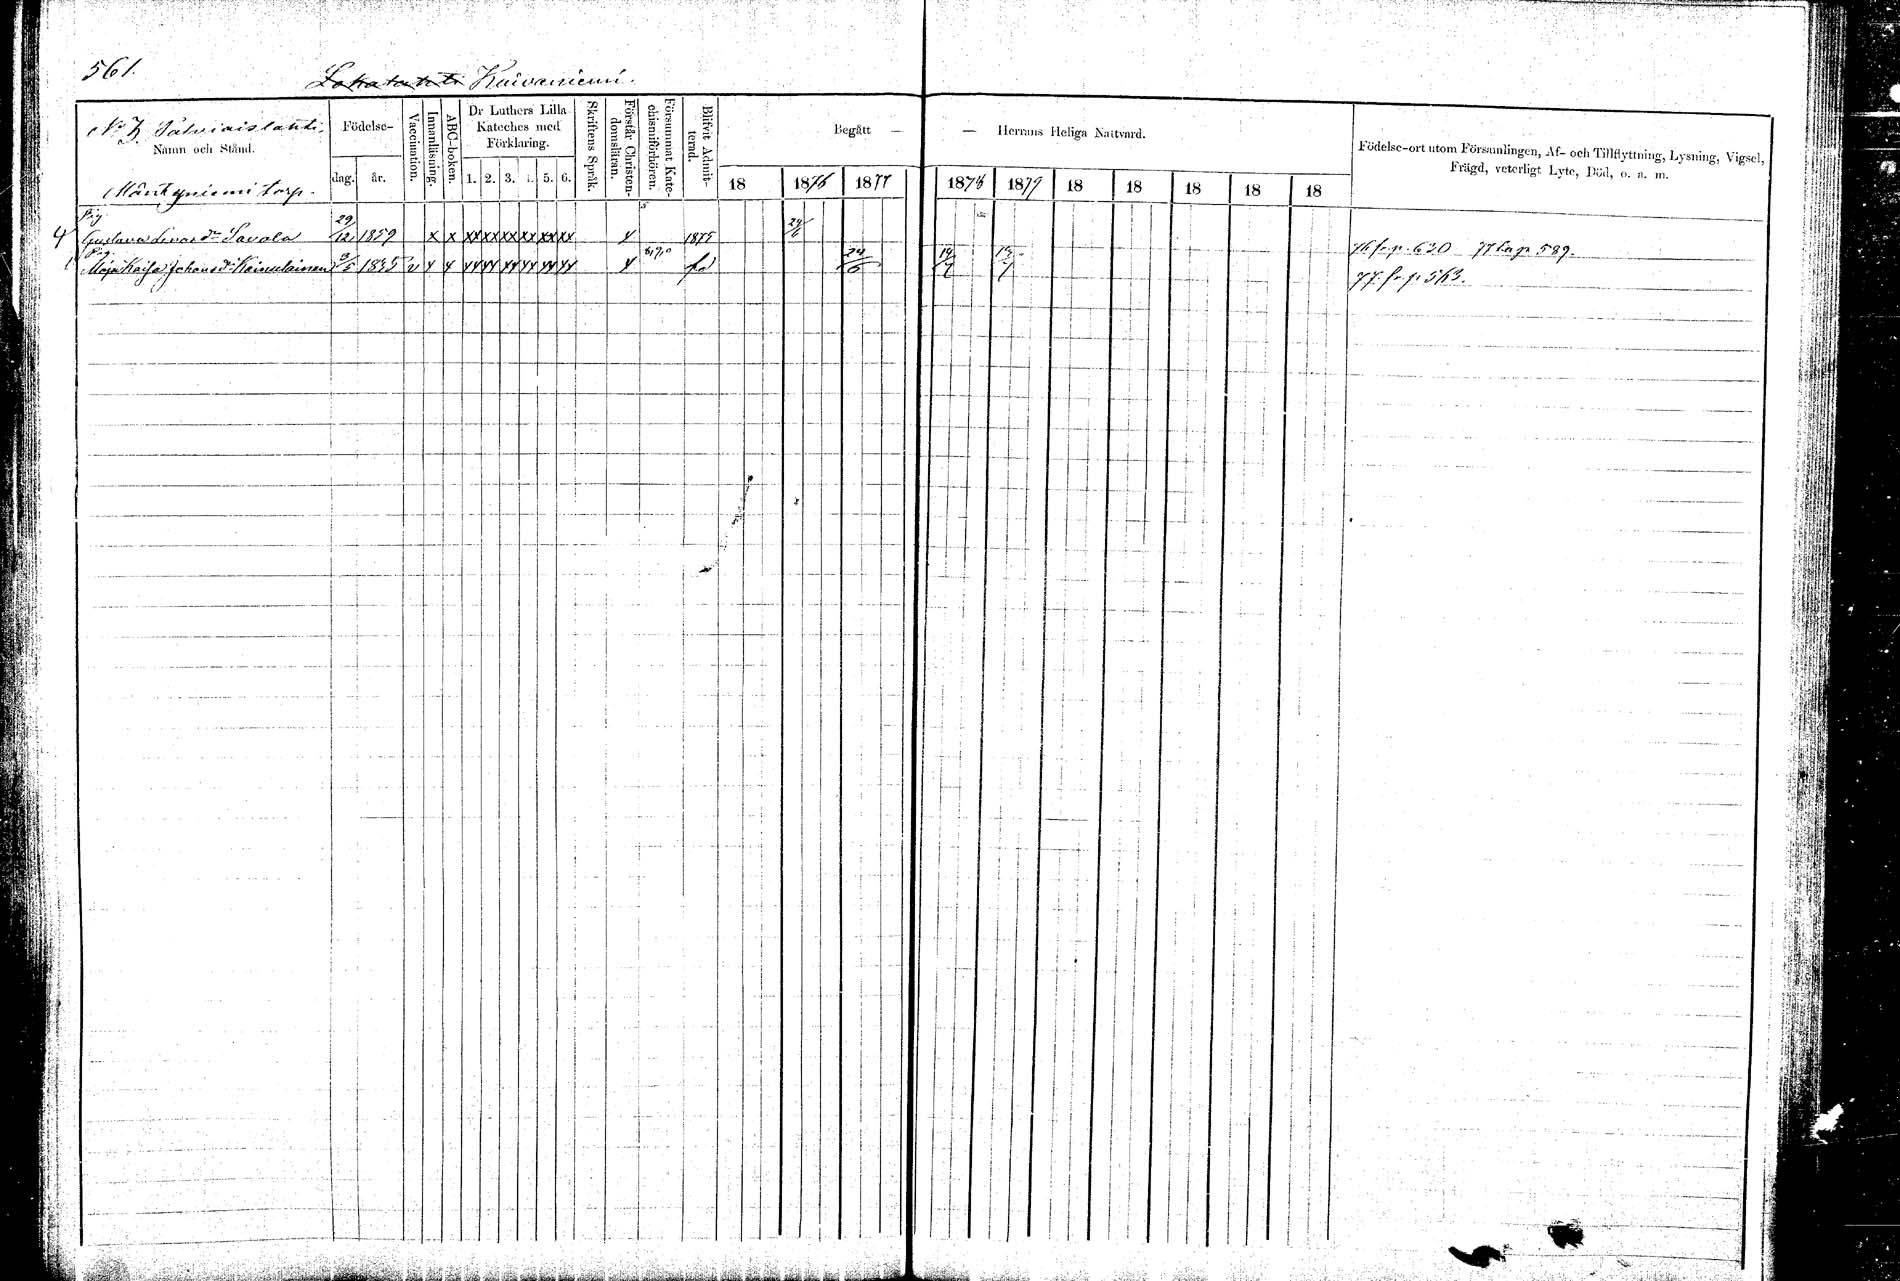 561.
Kaivaniemi.
No 7 Salviaislahti.
Namn och Stånd.
Mäntyniemi torp.
Födelse-
dag. år.
Vaccination.
Innanläsning.
ABC-boken.
Dr Luthers Lilla Kateches med Förklaring.
1. 2. 3. 4. 5. 6.
Skriftens Språk.
Förstår Christendomsläran.
Försummat Katechismiförhören.
Blifvit Admitterad.
Begått — — Herrans Heliga Nattvard.
18 1876 1877 1878 1879 18 18 18 18 18
Födelse-ort utom Församlingen, Af- och Tillflyttning, Lysning, Vigsel,
Frägd, veterligt Lyte, Död, o. a. m.
Pig.
4 Gustava dr Savola 29/12 1859 x x xx xx xx xx xx xx x 1875 24/6 76 fr. p. 630 77 p. 589.
Pig.
Maja Kaisa Johansdr Kainulainen 3/5 1835 v x x xx xx xx xx xx xx x 24/6 77 fr. p. 563.